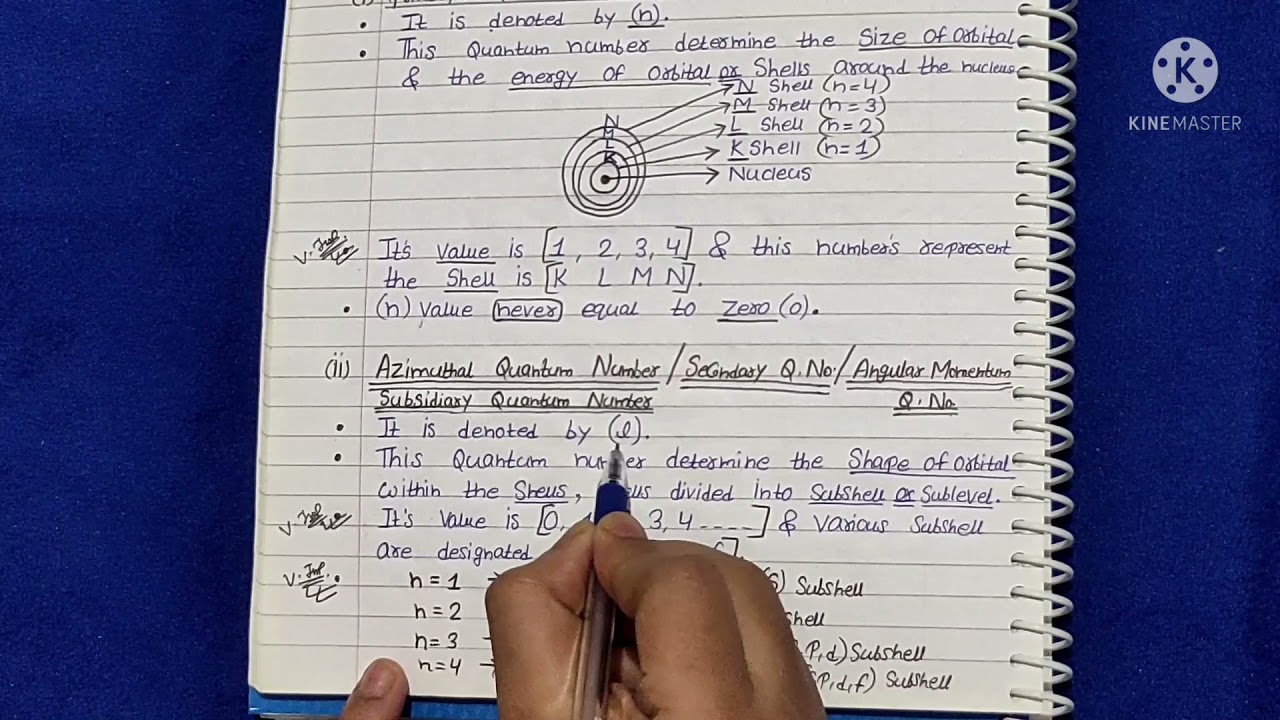 It is denoted by (n).
This Quantum number determine the Size of Orbital
& the energy of Orbital or Shells around the nucleus
N Shell (n=4)
M Shell (n=3)
L Shell (n=2)
K Shell (n=1)
Nucleus
N
M
L
K
KINEMASTER
V. Imp
It's Value is [1, 2, 3, 4] & this number's represent
the Shell is [K L M N].
(n) Value never equal to Zero (0).
(ii) Azimuthal Quantum Number / Secondary Q.No. / Angular Momentum
Subsidiary Quantum Number Q.No.
It is denoted by (l).
This Quantum determine the Shape of Orbital
Within the Shells, divided into Subshell or Sublevel.
It's Value is [0, 3, 4 -----] & Various Subshell
are designated
V. Imp
n=1 Subshell
n=2
n=3 P,d) Subshell
n=4 P,d,f) Subshell